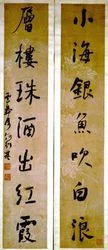 小海銀魚吹白浪
層樓珠酒出紅霞